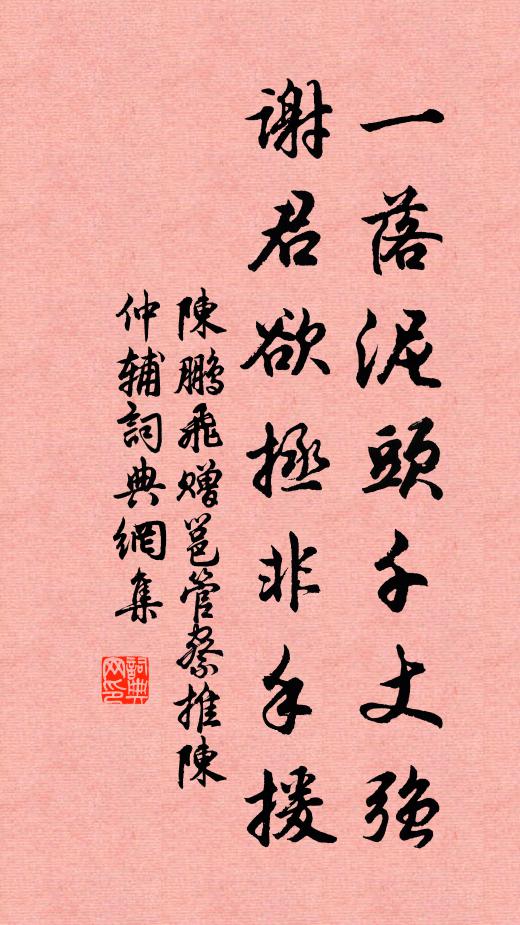 一落泥頭千丈強
謝君欲拯非手援
陳鵬飛贈邕管察推陳
仲辅詞典網集
詞典网印